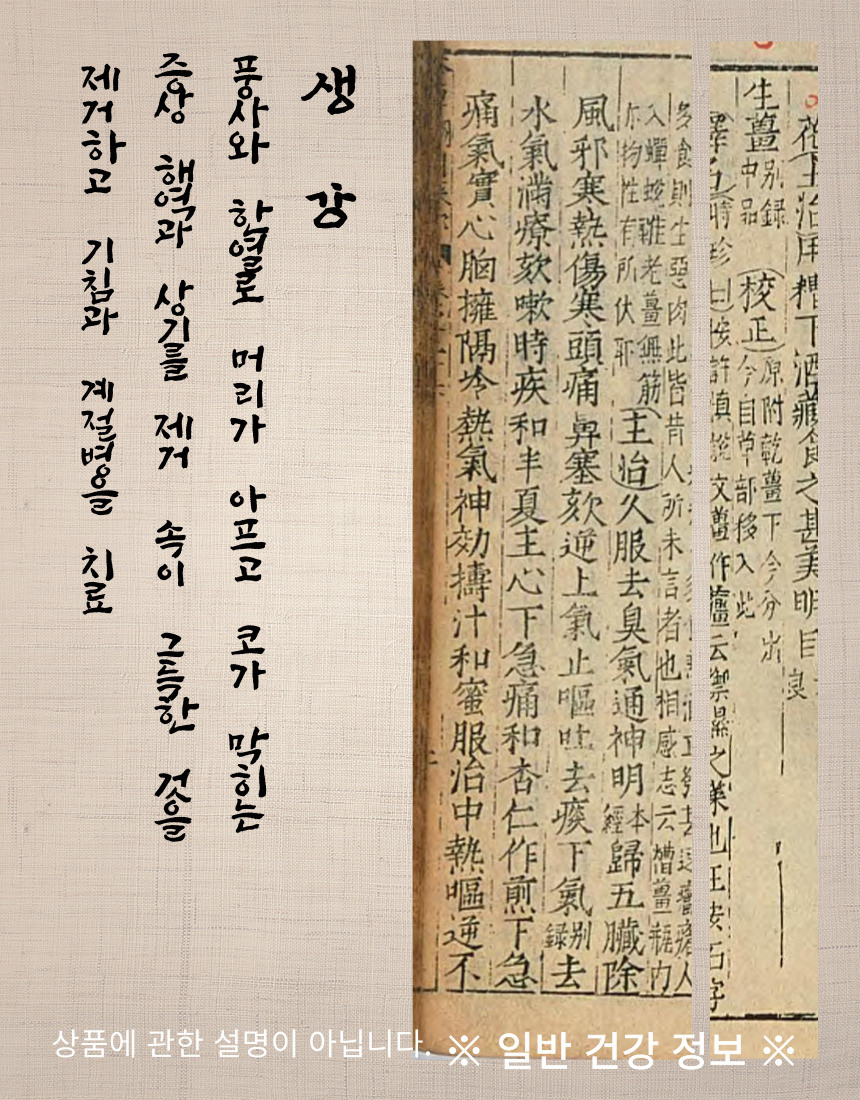 생강
풍사와 한열로 머리가 아프고 코가 막히는
증상 해역과 상기를 제거 속이 그득한 것을
제거하고 기침과 계절병을 치료
生薑 別録中品 校正 原附乾薑下今分出今自草部移入此
釋名 時珍曰按許慎說文薑作䕬云禦濕之菜也王安石字
入蟬蛻雖老薑無筋亦物性有所伏耶 主治 久服去臭氣通神明本經歸五臟除
風邪寒熱傷寒頭痛鼻塞欬逆上氣止嘔吐去痰下氣別録去
水氣滿療欬嗽時疾和半夏主心下急痛和杏仁作煎下急
痛氣實心胸擁隔冷熱氣神効擣汁和蜜服治中熱嘔逆不
상품에 관한 설명이 아닙니다. ※ 일반 건강 정보 ※